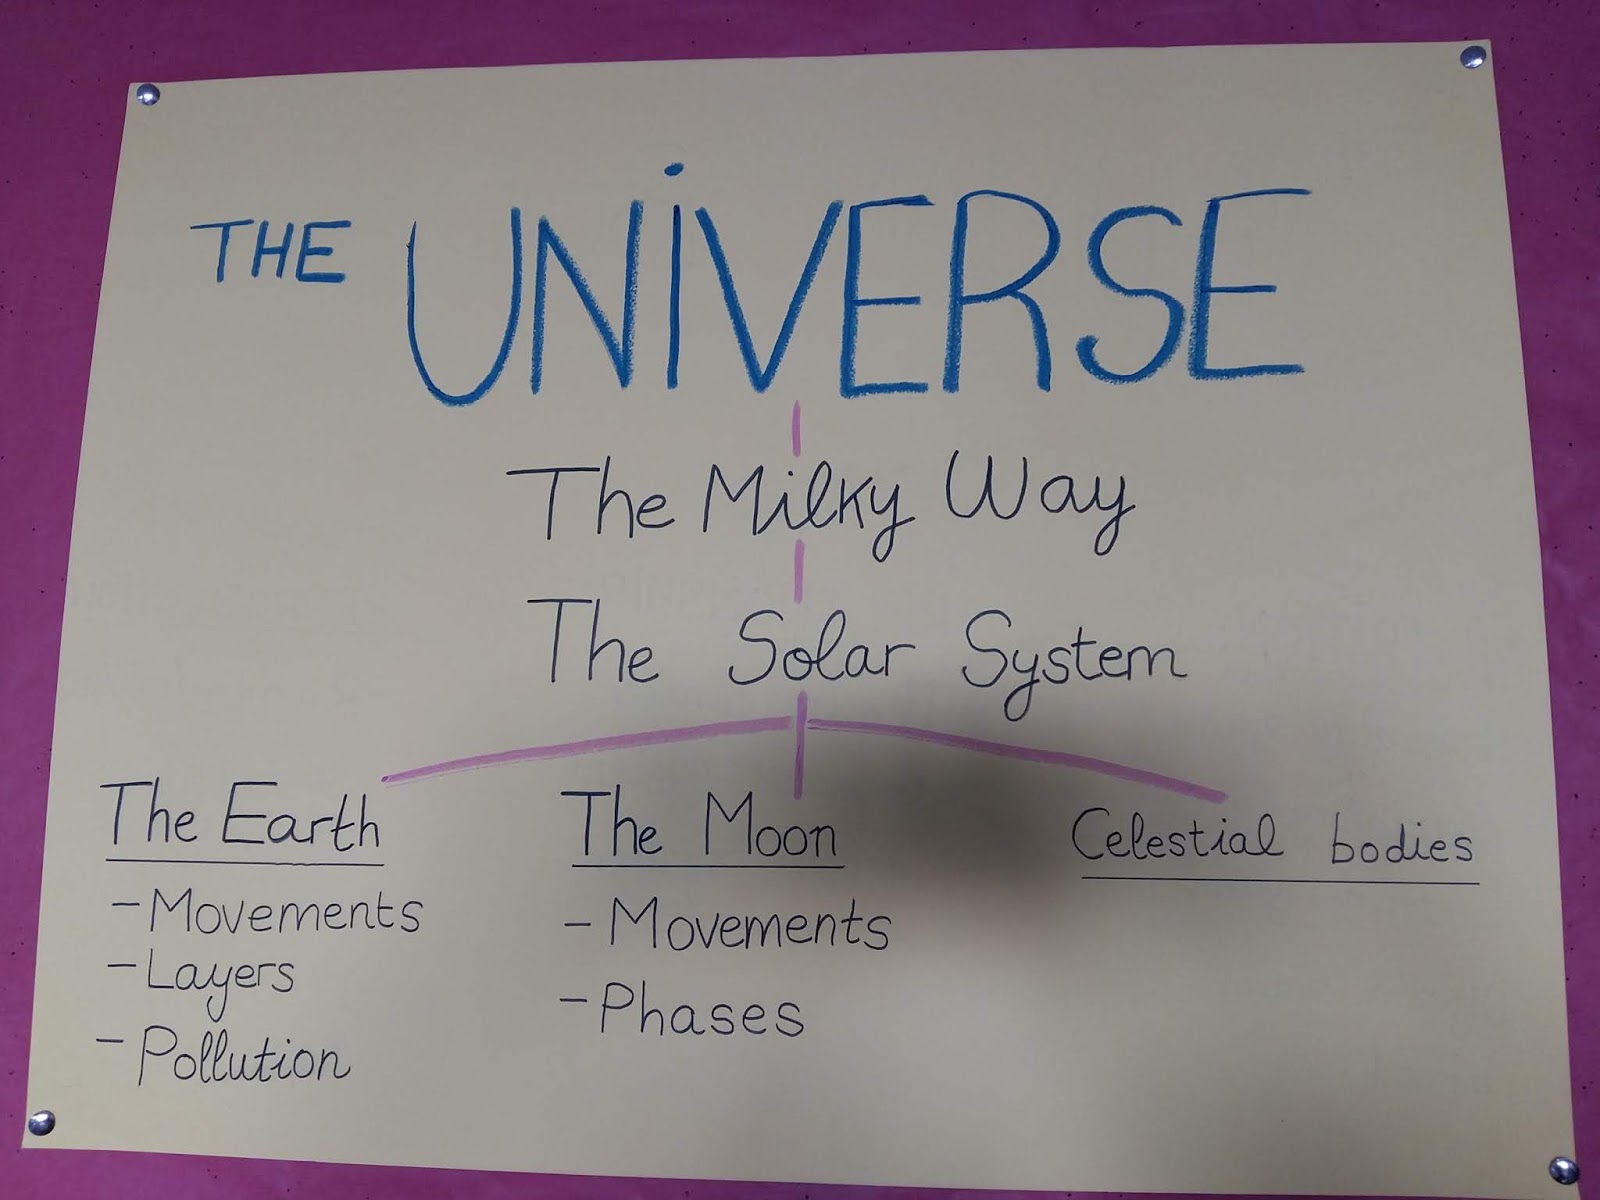 THE UNiVERSE
The Milky Way
The Solar System
The Earth
- Movements
- Layers
- Pollution
The Moon
- Movements
- Phases
Celestial bodies